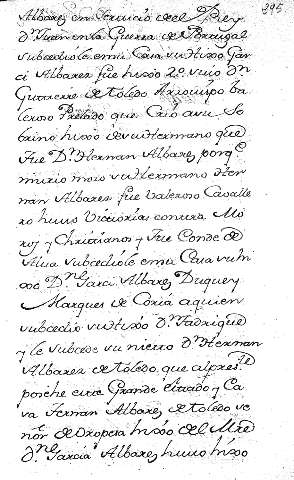 395
Albarez en servicio de el Rey
Dn Juan en la Guerra de Portugal
subcediole en su Casa su hixo Gar
ci Albarez fue hixo 2º suio Dn
Gutierre de Toledo Arzobispo ba
leroso Prelado que Crio a su So
brino hixo de su Hermano que
fue Dn Hernan Albarez porqe
murio mozo su Hermano Her
nan Albarez fue Valeroso Cavalle
ro hubo Victorias contra Mo
ros y Christianos y fue Conde de
Alva subcediole en su Casa su hi
xo Dn Garci Albarez Duque y
Marques de Coria a quien
subcedio su hixo Dn Fadrique
y le subcede su nieto Dn Hernan
Albarez de Toledo, que al preste
posehe este Grande estado y Ca
sa Fernan Albarez de Toledo se
ñor de Oropesa hixo del Mre
Dn Garcia Albarez hubo hixo